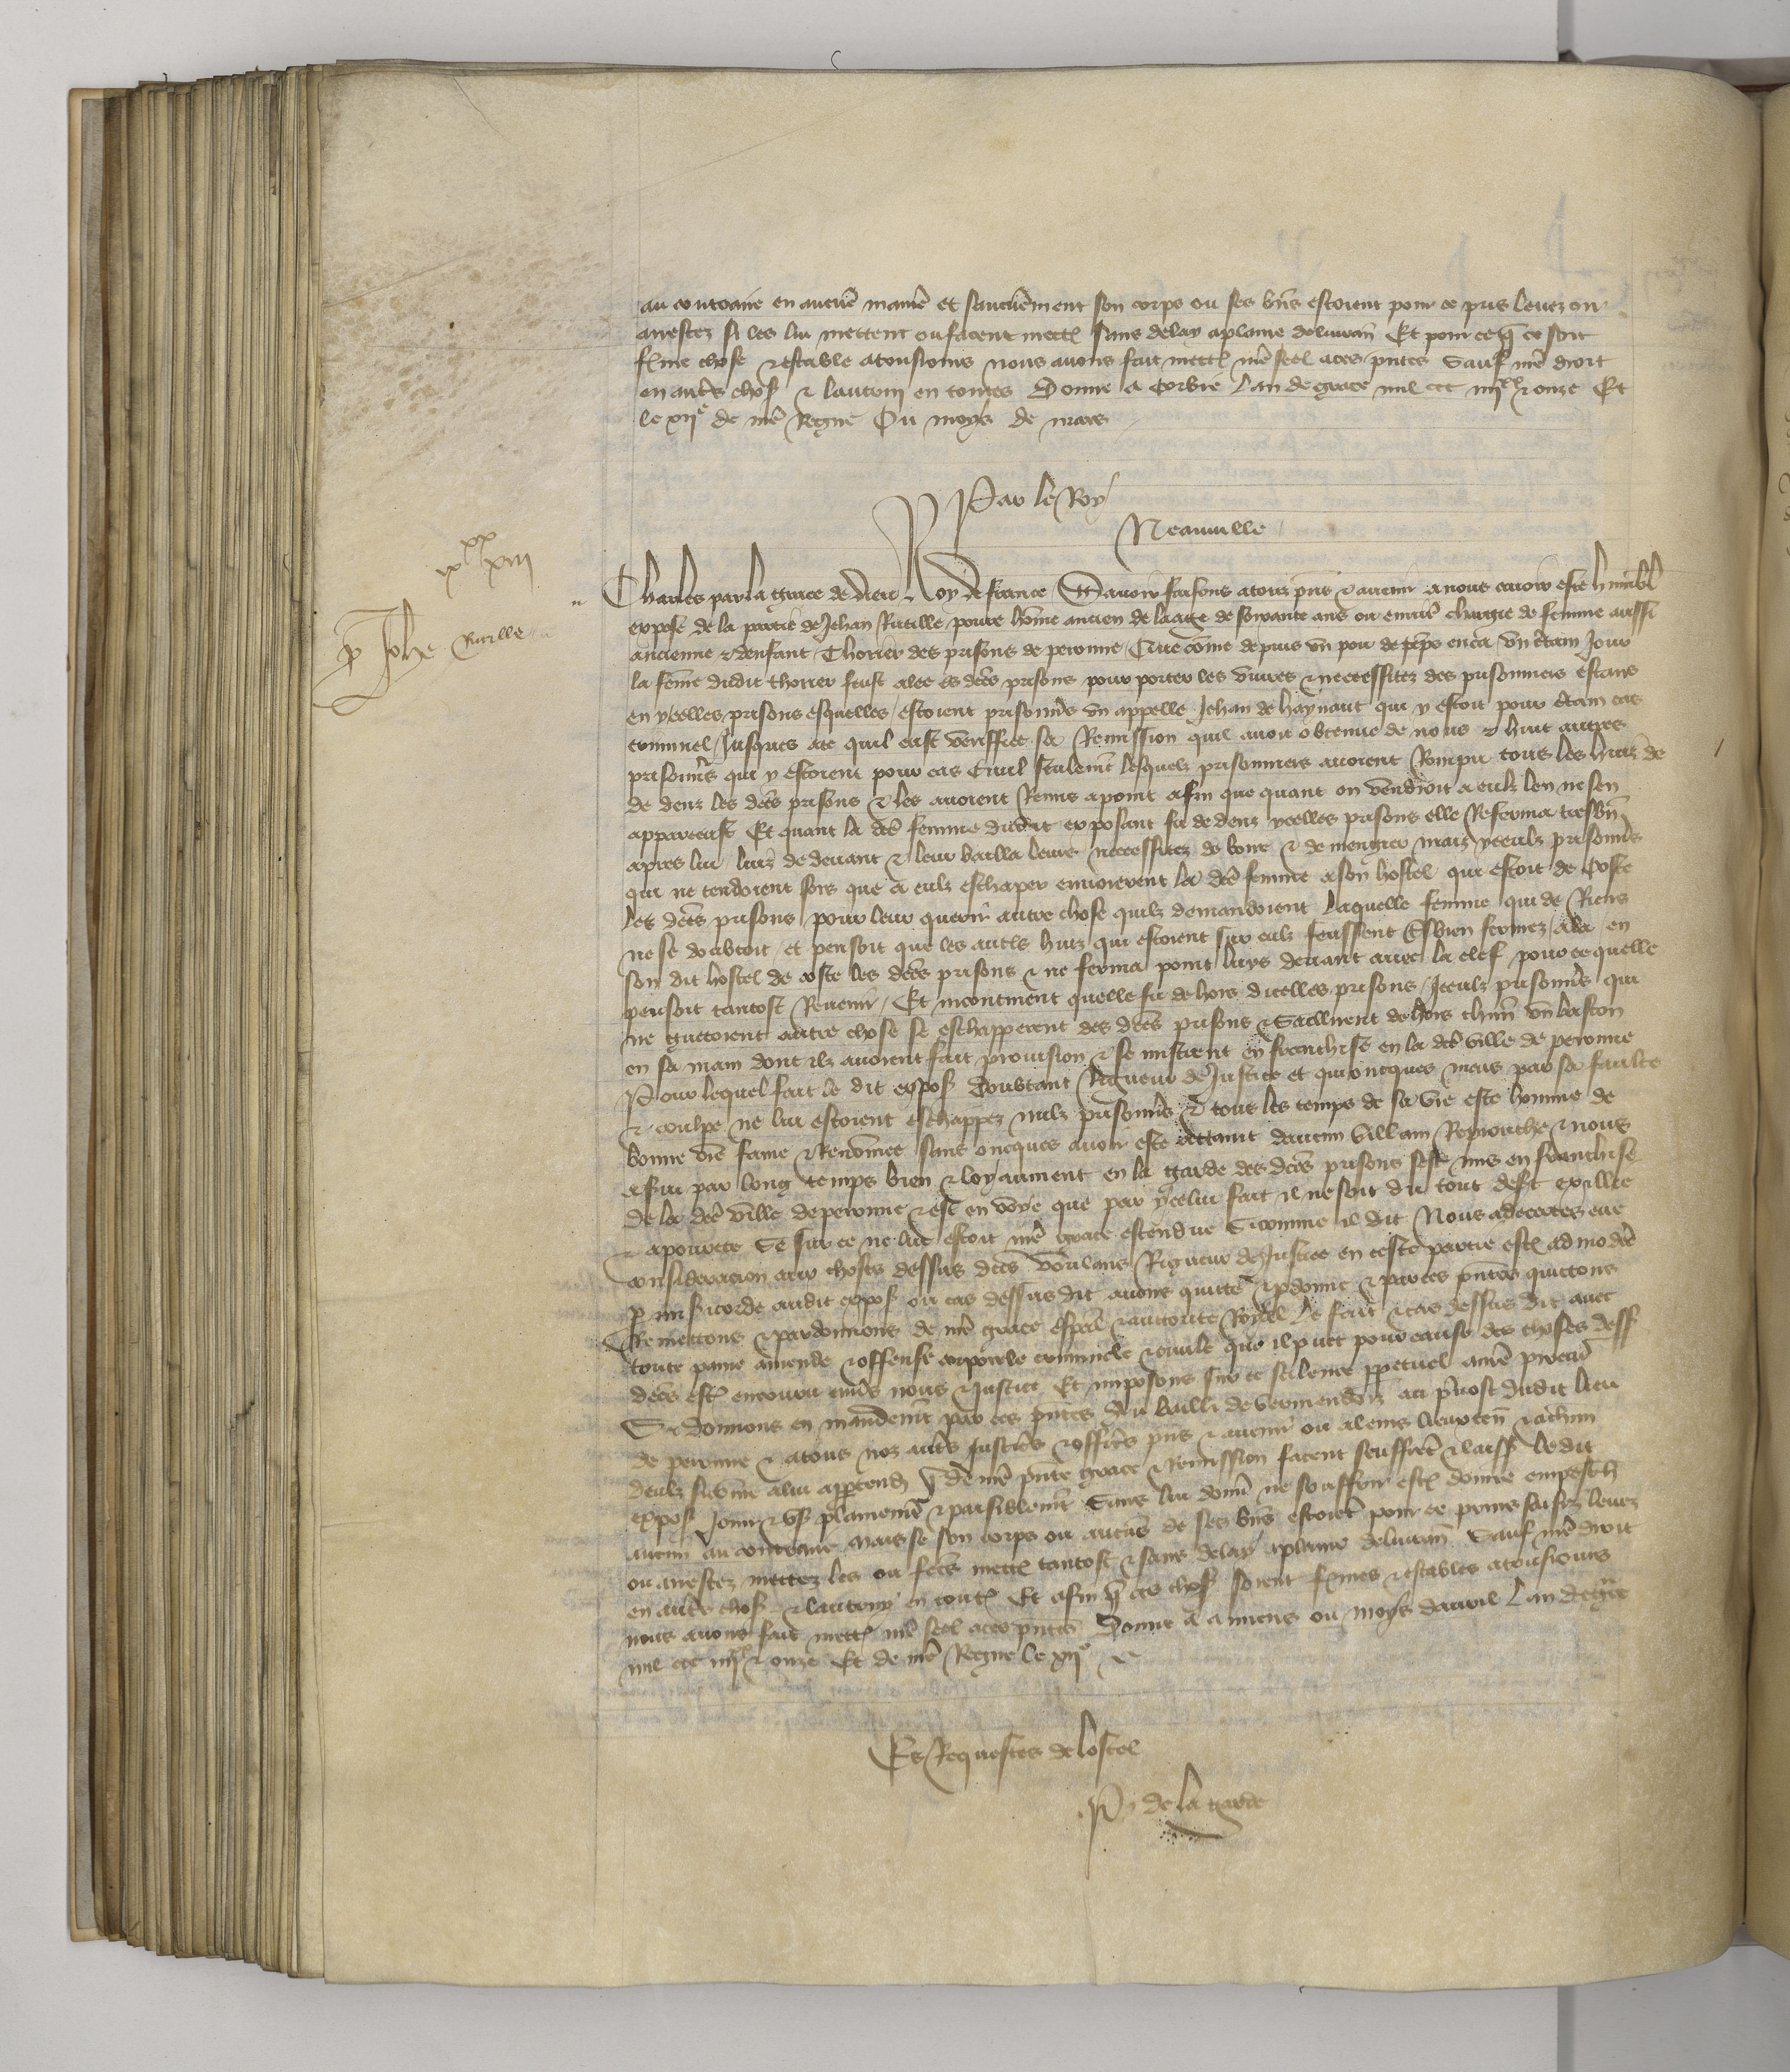 au contraire en aucune maniē et saucunement son corps ou ses bn̄s estoient pour ce pris levez ou
arrestez si les lui mettent ou facent mettr̄ sans delay a plaine delivran̄ Et pour ce q̄ ce soit
ferme chose & estable a tousiours nous avons fait mettr̄ nr̄e seel a ces pn̄tes Sauf nr̄e droit
en autr̄s chos̄ & lautruy en toutes Donne a Corbie lan de grace mil ccc iiijxx & onze Et
le xije de nr̄e Regne Ou moys de mars
Par le Roy
Neauville
ixxx xiii
p̄ Johē Rutille
Charles par la grace de dieu Roy de france Savoir faisons a touz pn̄s & avenir a nous avoir este humbl̄
expose de la partie de Jehan Rutille povre hom̄e ancien de laage de soixante ans ou environ chargie de femme aussi
ancienne & denfant Chorier des prisons de peronne Que com̄e depuis un pou de temps enca un c̄tain Jour
la fem̄e dudit thorier feust alee es dc̄es prisons pour porter les vivres & necessitez des prisonniers estans
en ycelles prisons esquelles estoient prisonn̄s un appelle Jehan de haynaut qui y estoit pour c̄tain cas
criminel Jusques a ce quil eust veriffiee sa Remission quil avoit obtenue de nous & huit autres
prisonn̄s qui y estoient pour cas Civil seulem̄t lesquelz prisonniers avoient Rompu tous les huiz de
de denz les dc̄es prisons & les avoient Remis a point afin que quant on vendroit a eulz len ne sen
apparceust Et quant la dc̄e femme dudit exposant fu de denz ycelles prisons elle Referma tresbn̄
apres lui luiz de devant & leur bailla leurs necessitez de boire & de mengier mais yceulz prisonn̄s
qui ne tendoient fors que a eulz eschaper envoierent la dc̄e femme a son hostel qui estoit de coste
les dc̄es prisons pour leur querir autre chose quilz demandoient laquelle femme qui de Riens
ne se doubtoit et pensoit que les autr̄s huiz qui estoient sur eulz feussent tresbien fermez ala en
son dit hostel de coste les dc̄es prisons & ne ferma point luys devant avec la clef pour ce quelle
pensoit tantost Revenir Et incontinent quelle fu de hors dicelles prisons Iceulz prisonn̄s qui
ne guettoient autre chose se eschapperent des dc̄es prisons & saillirent dehors chūn un baston
en sa main dont ilz avoient fait provision & se mistrent en franchise en la dc̄e ville de peronne
Pour lequel fait le dit expos̄ doubtant Rigueur de Justice et qui oncques mais par sa faulte
& coulpe ne lui estoient eschappez nulz prisonn̄s & tout les temps de sa vie este homme de
bonne vie fame & Renom̄ee sans oncques avoir este attaint daucun villain Reprouche & nous
a servi par long temps bien & loyaument en la garde des dc̄es prisons sest mis en franchise
de la dc̄e ville de peronne & est en voye que par ycelui fait il ne soit du tout desert exillie
& a povrete Se sur ce ne lui estoit nr̄e grace estendue Sicomme il dit Nous adecertes eue
consideracion aux choses dessus dc̄es voulans Rigueur de Justice en ceste partie estr̄ ad moderee
p̄ misericorde audit expos̄ ou cas dessus dit avons quitte & pardonne & par ces pn̄tes quittons
Remettons & pardonnons de nr̄e grace esp̄al & auctorite Royal le fait & cas dessus dit avec
toute paine amende & offense corporele criminele & civile que il puet pour cause des choses dess̄
dc̄es estr̄ encouru envs̄ nous & Justice Et imposons sur ce silence perpetuel a nr̄e procur̄
Si donnons en mandem̄t par ces pn̄tes au bailli de vermendois au prevost dudit lieu
de peronne & a tous noz autr̄s Justic̄s & offic̄s pn̄s & avenir ou a leurs lieuxten̄ & a chūn
deulz sicom̄e a lui appartendr̄ q̄ de nr̄e pn̄te grace & Remission facent seuffrent & laiss̄ ledit
expos̄ Joir & us̄ plainem̄t & paisiblem̄t sans lui donn̄ ne souffrir estr̄ donne empeschēt
aucun au contraire mais se son corps ou aucuns de ses bn̄s estoient pour ce prins saisiz levez
ou arrestez mettez les ou fc̄es mettr̄ tantost & sans delay a plaine delivran̄ Sauf nr̄e droit
en autr̄s chos̄ & lautruy en tout̄ Et afin q̄ ces chos̄ soient fermes & estables a tousiours
nous avons fait mettr̄ nr̄e seel a ces pn̄tes Donne a amiens ou moys davril Lan de grc̄e
mil ccc iiijxx & onze Et de nr̄e Regne le xije
Es Requestes de lostel
P de la garde